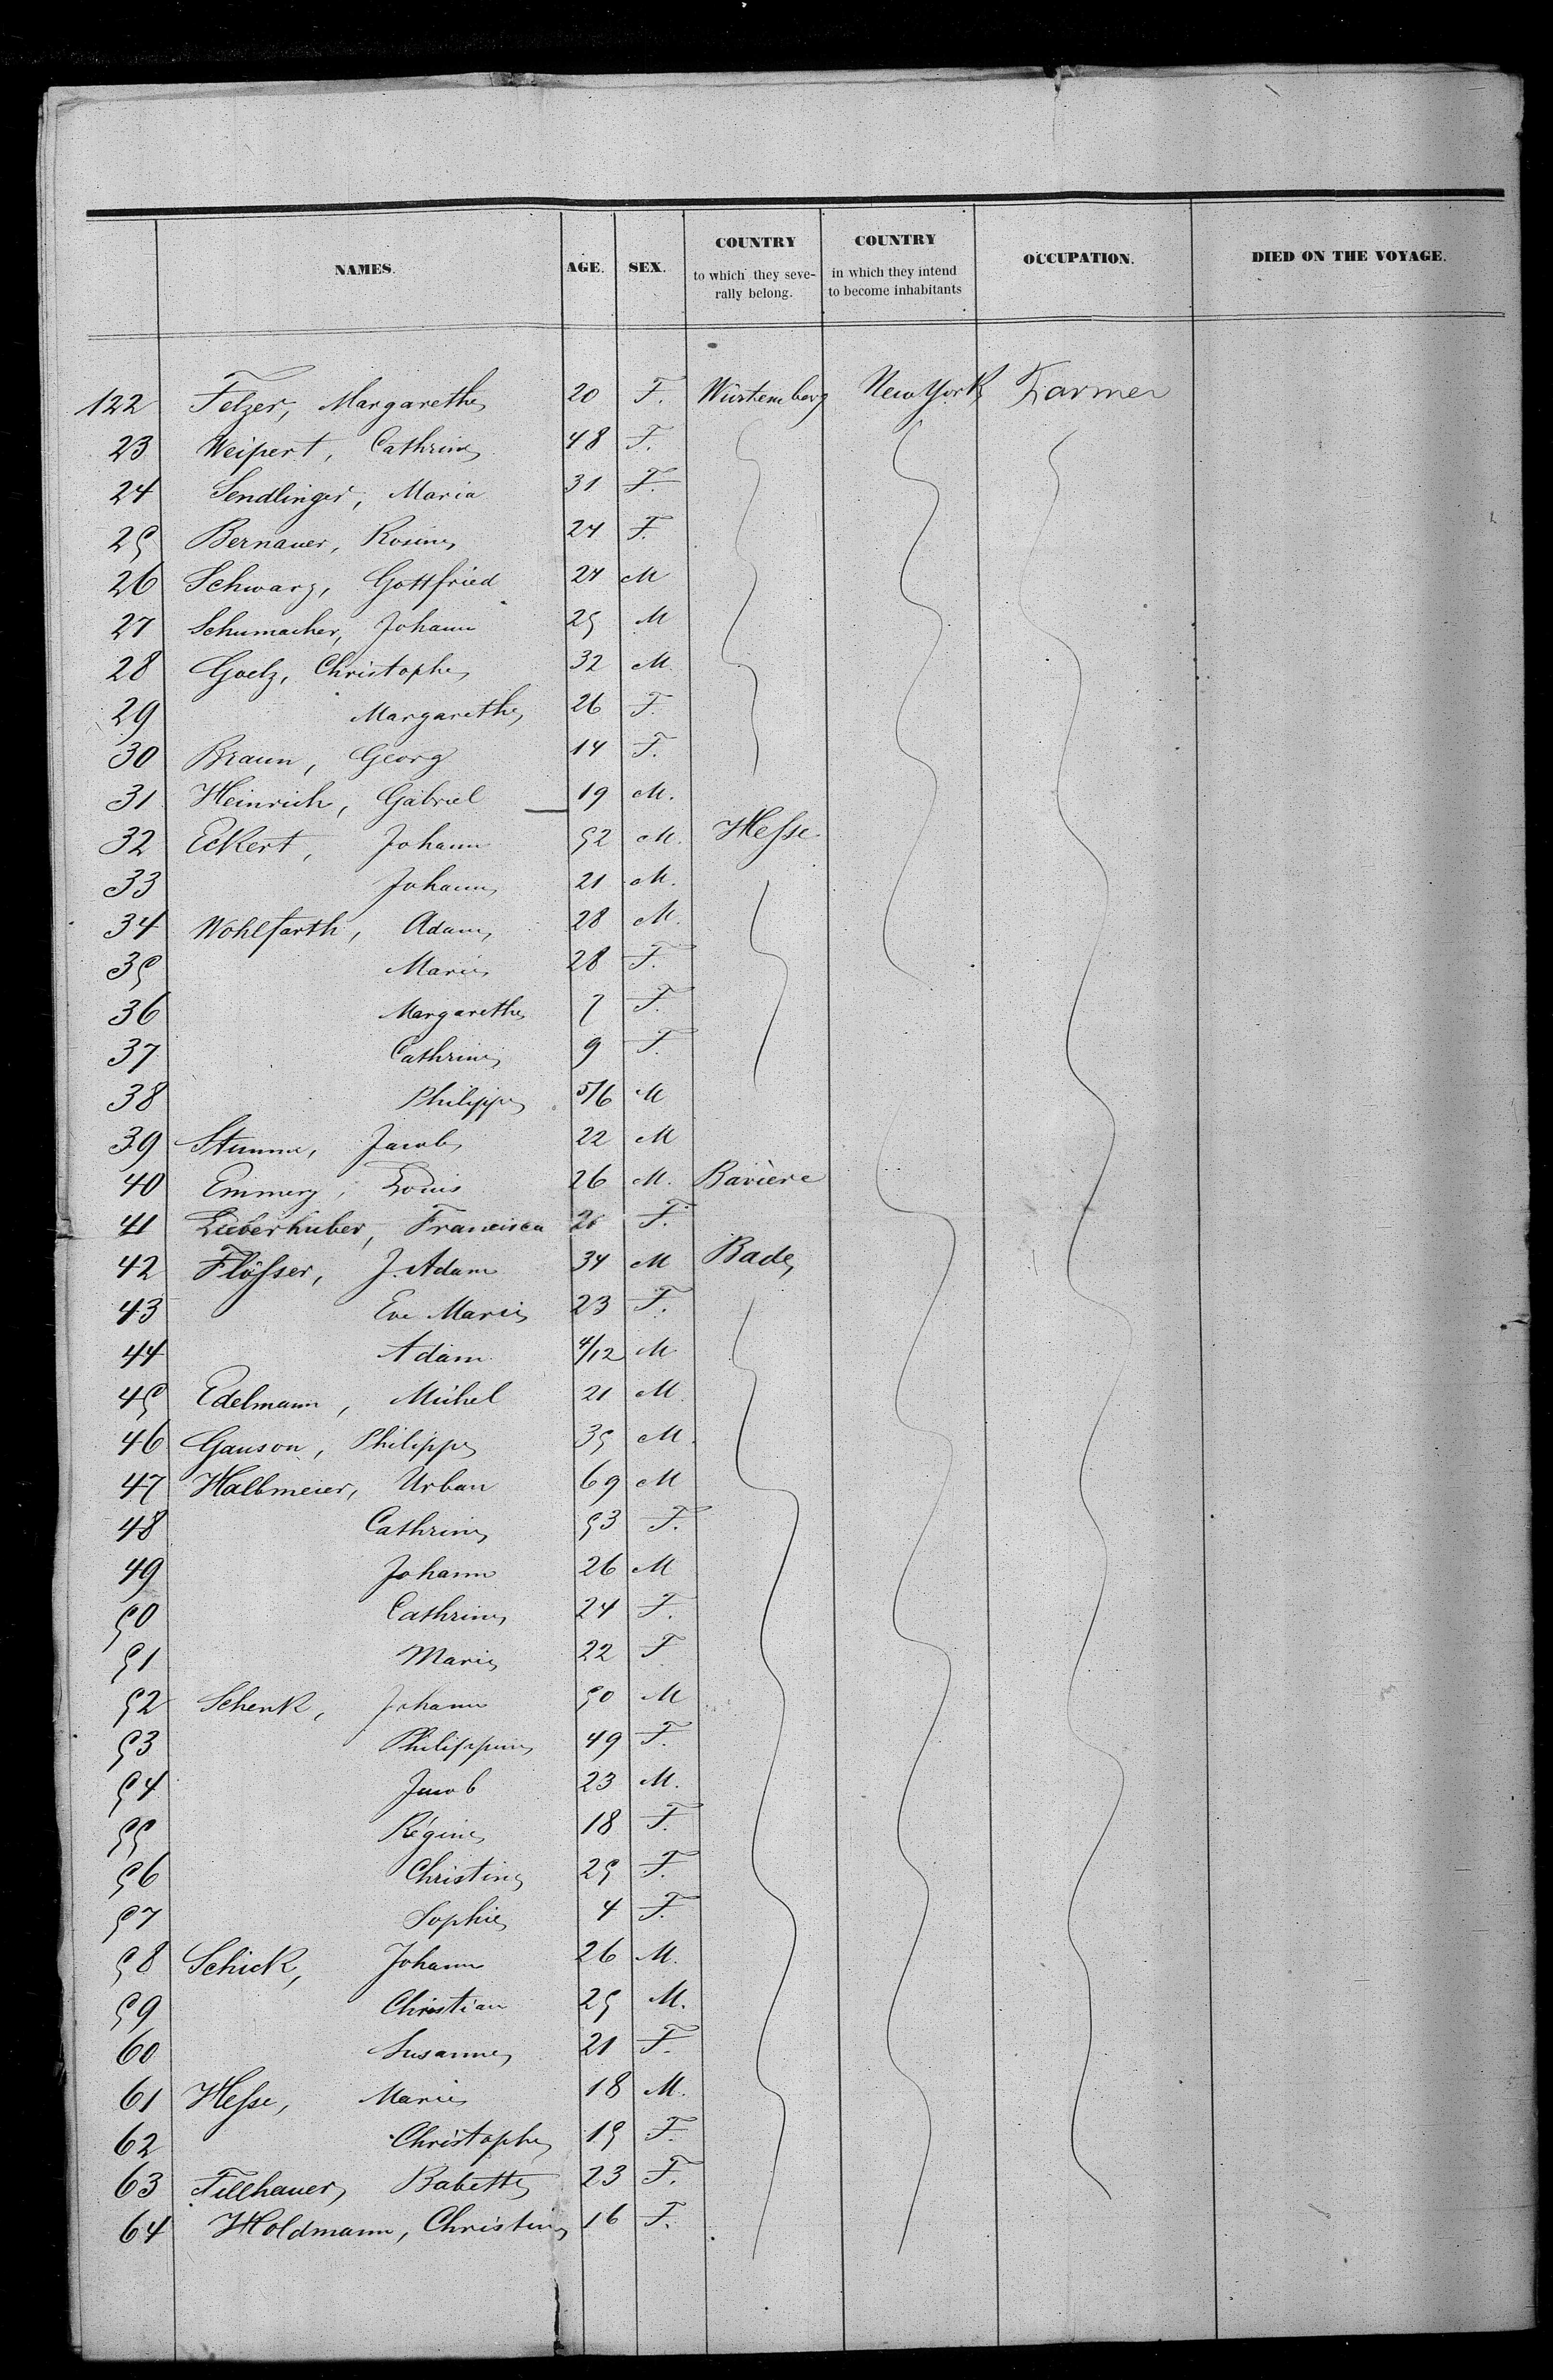 NAMES. AGE. SEX. COUNTRY to which they severally belong. COUNTRY in which they intend to become inhabitants OCCUPATION. DIED ON THE VOYAGE.
122 Felzer, Margarethe 20 F. Würtemberg New York Farmer
23 Weipert, Cathrine 48 F.
24 Sendlinger, Maria 31 F.
25 Bernauer, Rosine 24 F.
26 Schwarz, Gottfried 24 M
27 Schumacher, Johann 25 M
28 Goelz, Christophe 32 M.
29 Margarethe 26 F.
30 Braun, Georg 14 F.
31 Heinrich, Gabriel 19 M.
32 Eckert, Johann 52 M. Hesse
33 Johann 21 M.
34 Wohlfarth, Adam 28 M.
35 Marie 28 F.
36 Margarethe 7 F.
37 Cathrine 9 F.
38 Philippe 5/6 M
39 Stumme, Jacob 22 M
40 Emmerg, Louis 26 M. Bavière
41 Lieberhuber, Francisca 26 F.
42 Flösser, J. Adam 34 M Bade
43 Eve Marie 23 F.
44 Adam 4/12 M
45 Edelmann, Michel 21 M
46 Ganson, Philippe 35 M.
47 Halbmeier, Urban 69 M
48 Cathrine 53 F.
49 Johann 26 M
50 Cathrine 24 F.
51 Marie 22 F
52 Schenk, Johann 50 M
53 Philippine 49 F.
54 Jacob 23 M.
55 Régine 18 F.
56 Christine 25 F.
57 Sophie 4 F.
58 Schick, Johann 26 M.
59 Christian 25 M.
60 Susanne 21 F.
61 Hesse, Marie 18 M.
62 Christophe 15 F.
63 Fellhauer, Babette 23 F.
64 Holdmann, Christine 16 F.